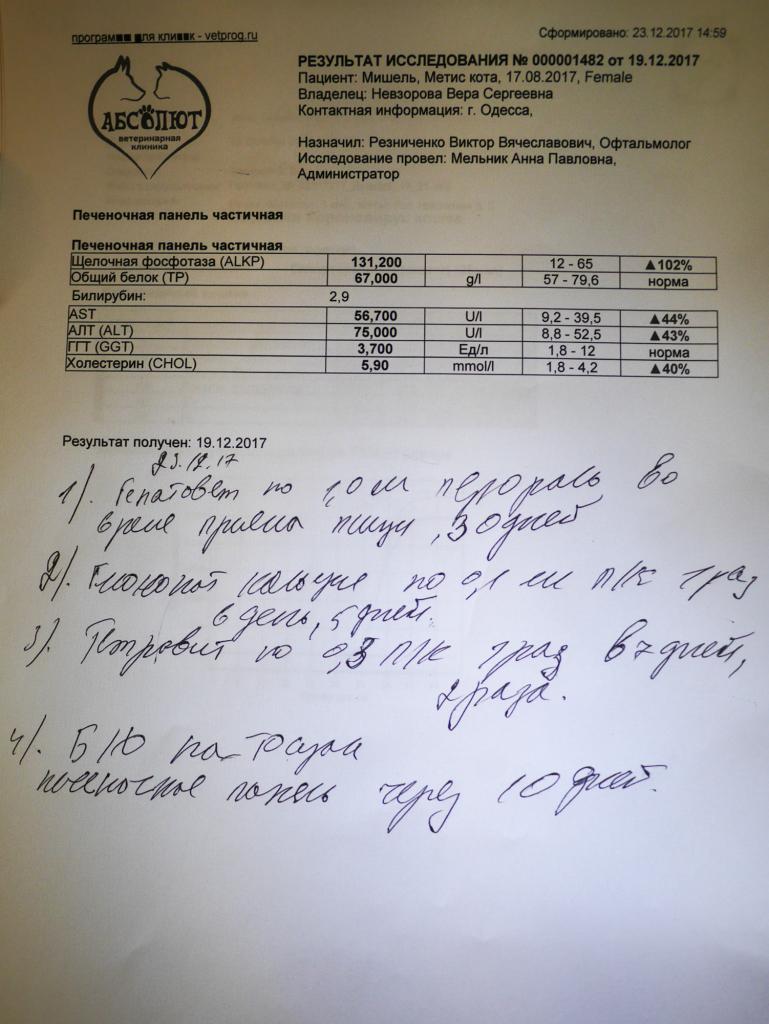 програм для кли к - vetprog.ru
Сформировано: 23.12.2017 14:59
АБСОЛЮТ
ветеринарная
клиника
РЕЗУЛЬТАТ ИССЛЕДОВАНИЯ № 000001482 от 19.12.2017
Пациент: Мишель, Метис кота, 17.08.2017, Female
Владелец: Невзорова Вера Сергеевна
Контактная информация: г. Одесса,
Назначил: Резниченко Виктор Вячеславович, Офтальмолог
Исследование провел: Мельник Анна Павловна,
Администратор
Печеночная панель частичная
Печеночная панель частичная
Щелочная фосфотаза (ALKP) 131,200 12 - 65 ▲102%
Общий белок (TP) 67,000 g/l 57 - 79,6 норма
Билирубин: 2,9
AST 56,700 U/l 9,2 - 39,5 ▲44%
АЛТ (ALT) 75,000 U/l 8,8 - 52,5 ▲43%
ГГТ (GGT) 3,700 Ед/л 1,8 - 12 норма
Холестерин (CHOL) 5,90 mmol/l 1,8 - 4,2 ▲40%
Результат получен: 19.12.2017
23.12.17
1). Гепатовет по 1,0 мл перорально во
время приема пищи, 30 дней
2). Глюконат кальция по 0,1 мл П/К 1 раз
в день, 5 дней.
3). Тетравит по 0,3 П/К 1 раз в 7 дней,
2 раза.
4). Б/Х
печеночная панель через 10 дней.